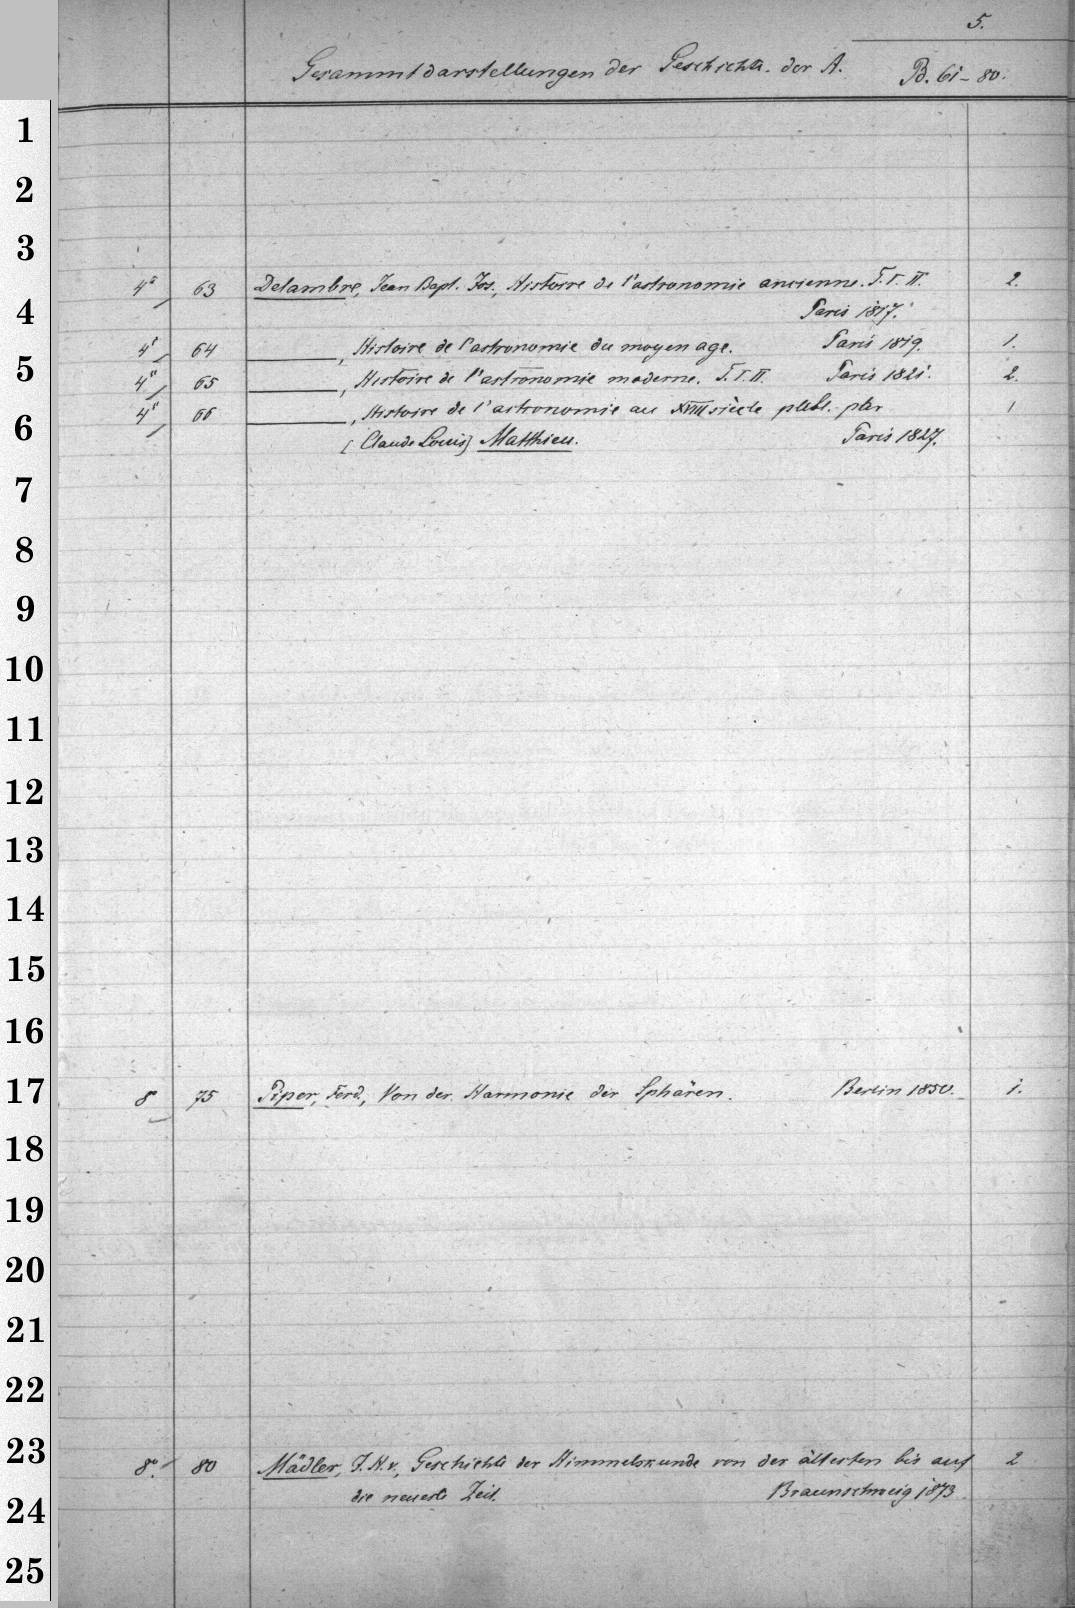 5.
Gesammtdarstellungen der Geschichte der A. B. 61-80.
1
2
3
4° 63 Delambre, Jean Bapt. Jos., Histoire de l'astronomie ancienne. T. I. II. 2.
4 Paris 1817.
4° 64 ———, Histoire de l'astronomie du moyen age. Paris 1819. 1.
5
4° 65 ———, Histoire de l'astronomie moderne. T. I. II. Paris 1821. 2.
4° 66 ———, Histoire de l'astronomie au XVIII siècle publ. par 1
6 [Claude Louis] Matthieu. Paris 1827.
7
8
9
10
11
12
13
14
15
16
17 8 75 Piper, Ferd., Von der Harmonie der Sphären. Berlin 1850. 1.
18
19
20
21
22
23 8°. 80 Mädler, J. H. v., Geschichte der Himmelskunde von der ältesten bis auf 2
24 die neueste Zeit. Braunschweig 1873
25